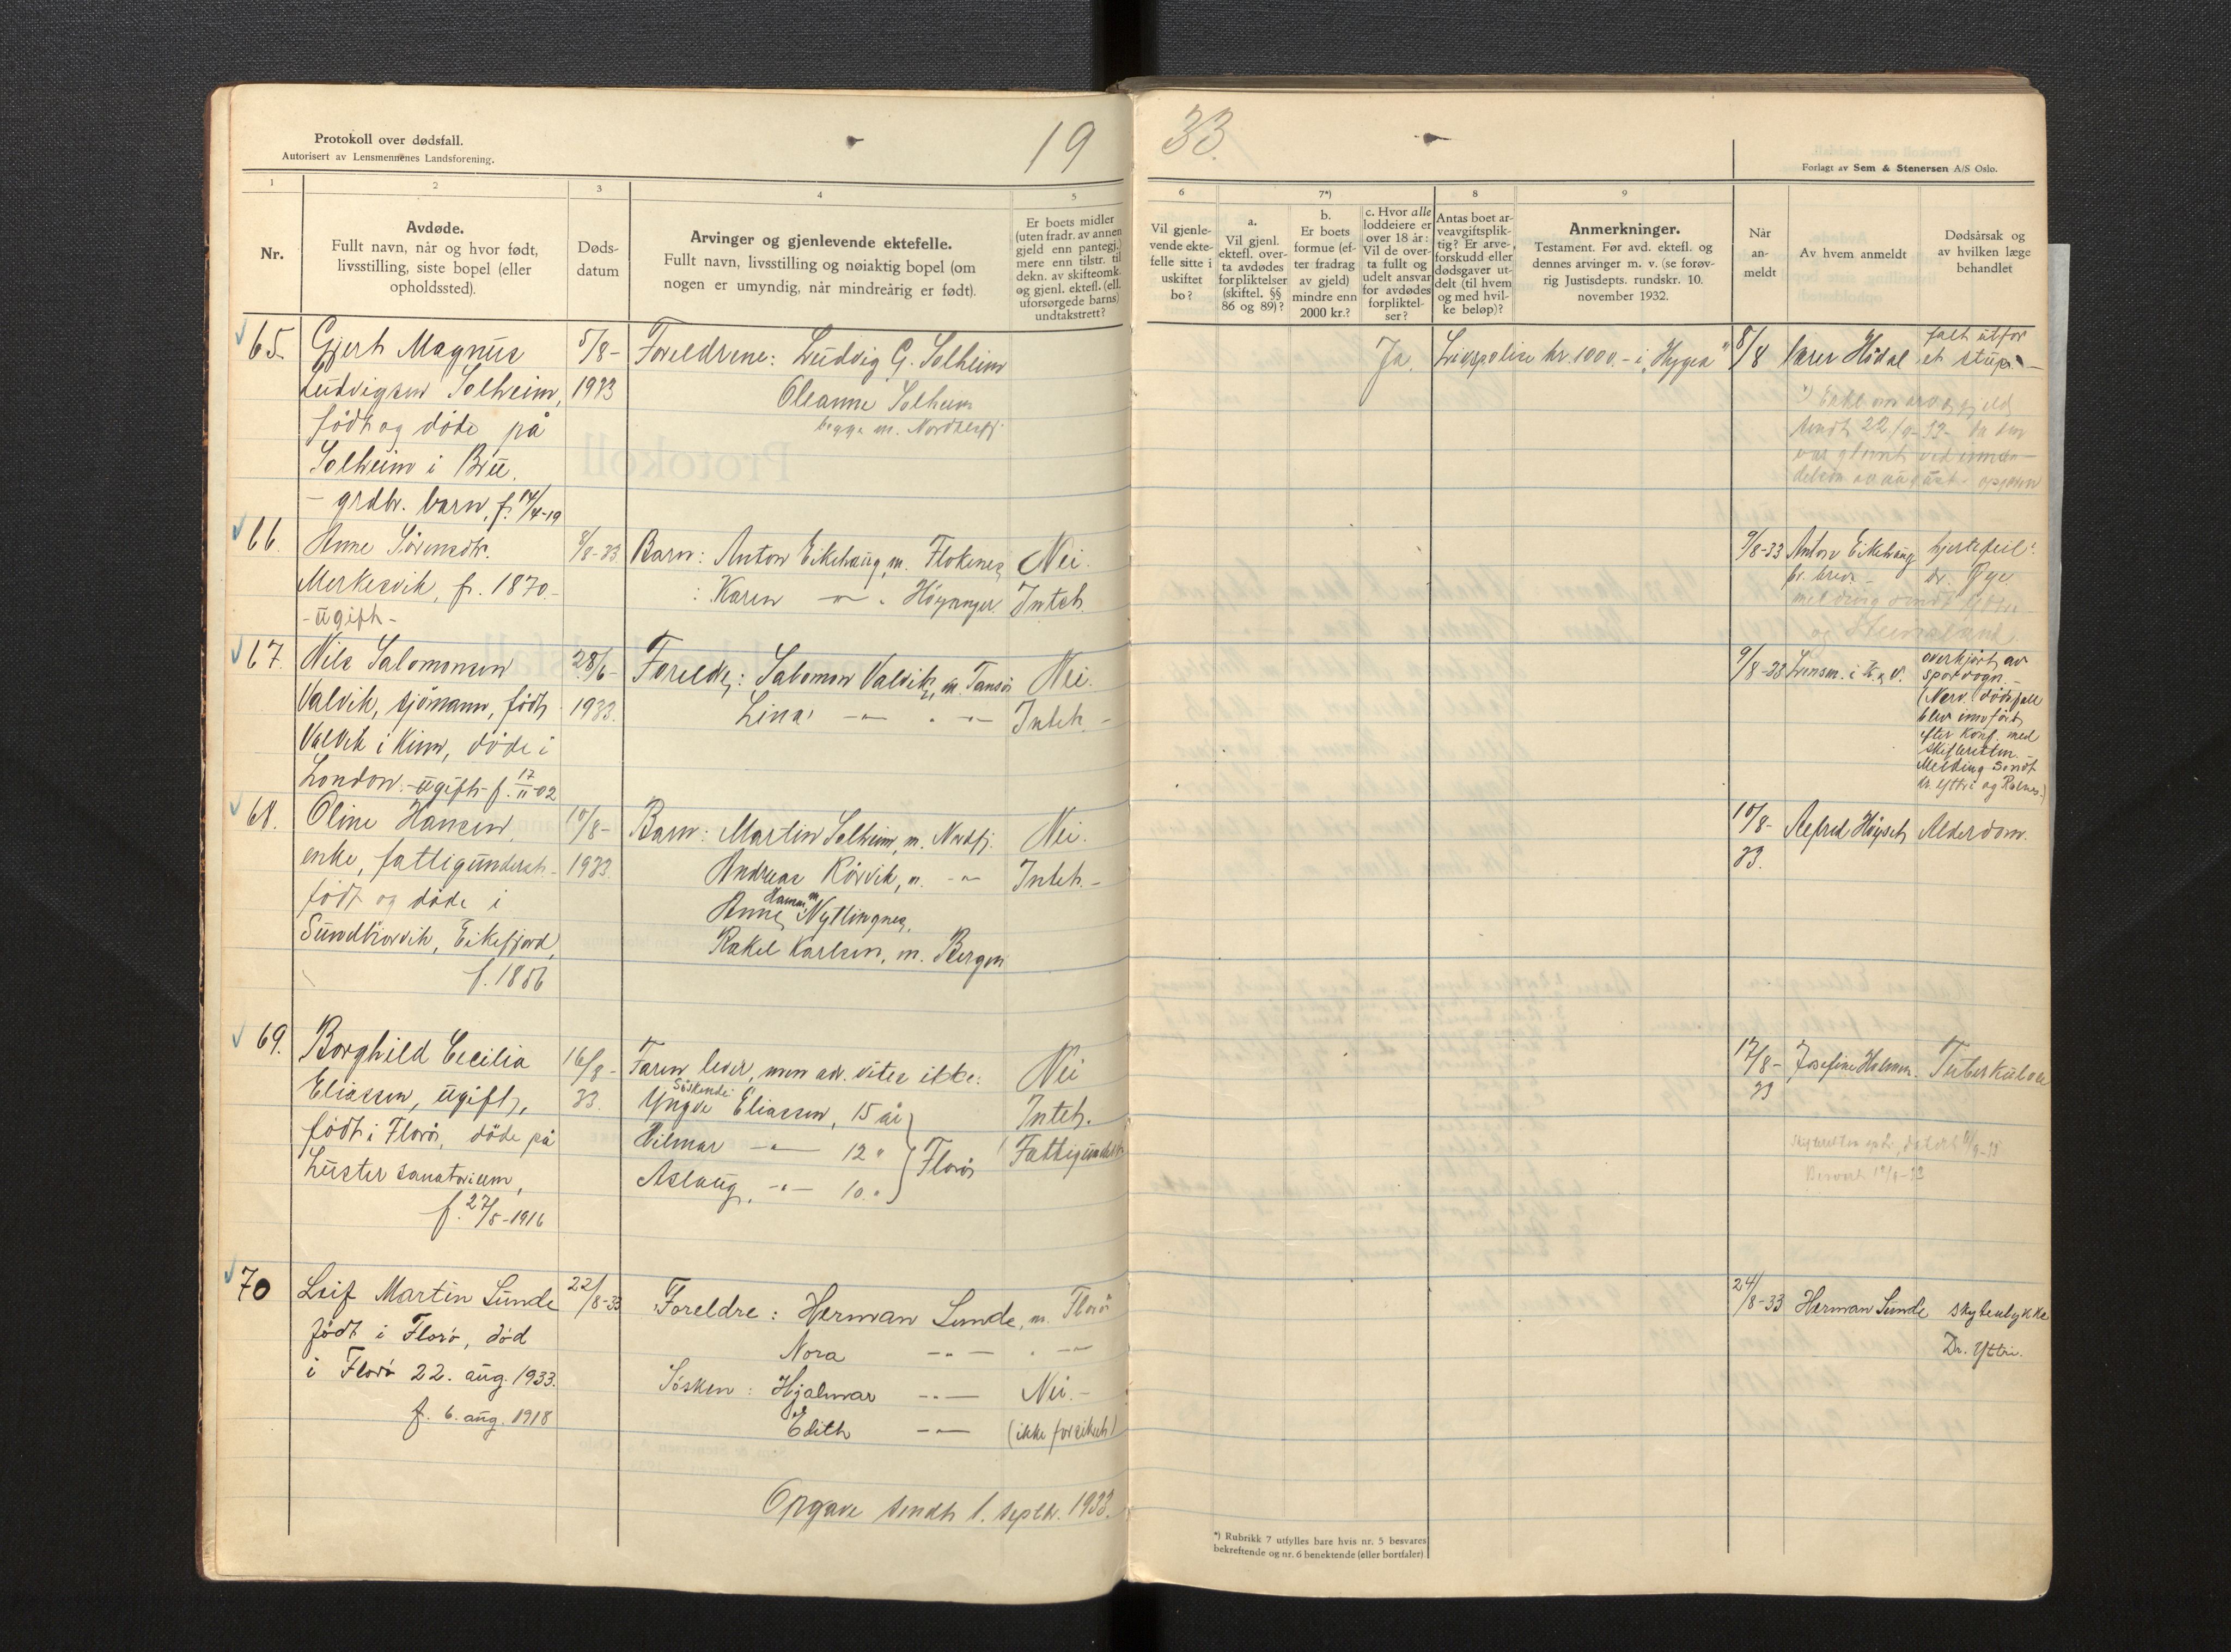 Protokoll over dødsfall.
Autorisert av Lensmennenes Landsforening.
19
33.
Forlagt av Sem & Stenersen A/S Oslo.
1
2
3
4
5
6
7*)
8
9
Nr.
Avdøde.
Fullt navn, når og hvor født,
livsstilling, siste bopel (eller
opholdssted).
Døds-
datum
Arvinger og gjenlevende ektefelle.
Fullt navn, livsstilling og nøiaktig bopel (om
nogen er umyndig, når mindreårig er født).
Er boets midler
(uten fradr. av annen
gjeld enn pantegj.)
mere enn tilstr. til
dekn. av skifteomk.
og gjenl. ektefl. (ell.
uforsørgede barns)
undtakstrett?
Vil gjenle-
vende ekte-
felle sitte i
uskiftet
bo?
a.
Vil gjenl.
ektefl. over-
ta avdødes
forpliktelser
(skiftel. §§
86 og 89)?
b.
Er boets
formue (ef-
ter fradrag
av gjeld)
mindre enn
2000 kr.?
c. Hvor alle
loddeiere er
over 18 år:
Vil de over-
ta fullt og
udelt ansvar
for avdødes
forpliktel-
ser?
Antas boet ar-
veavgiftsplik-
tig? Er arve-
forskudd eller
dødsgaver ut-
delt (til hvem
og med hvil-
ke beløp)?
Anmerkninger.
Testament. Før avd. ektefl. og
dennes arvinger m. v. (se forøv-
rig Justisdepts. rundskr. 10.
november 1932.
Når
an-
meldt
Av hvem anmeldt
Dødsårsak og
av hvilken læge
behandlet
65.
Gjert Magnus
Ludvigsen Solheim,
født og døde på
Solheim i Bru.
- grdbr. barn, f. 14/4-19
5/8-
1933
Foreldrene: Ludvig G. Solheim
Oleanne Solheim
begge m. Nordalsfj.
Ja.
Livspolise kr. 1000.- i "Hygea"
8/8
lærer Hødal
falt utfor
et stup. -
66.
Anne Sørensdtr.
Merkesvik, f. 1870.-
- ugift -
8/8-33
Barn: Anton Eikehaug, m. Flokenes
: Karen -"- . Höyanger.
Nei.
Intet.
9/8-33
Anton Eikehaug
pr. brev. -
hjertefeil.
dr. Øye.
67.
Nils Salomonsen
Valvik, sjömann, født
Valvik i Kinn, döde i
London. - ugift - f. 17/11-02
28/6-
1933.
Foreldre: Salomon Valvik, m. Tansöi
Lina -"- . -"-
Nei.
Intet. -
9/8-33
Lensm. i K. o. V.
overkjört av
sporvogn. -
(Nærv. dödsfall
blev innfört
efter konf. med
skifteretten. -
Melding sendt
dr. Yttri og Ramnes.)
68.
Oline Hansen,
enke, fattigunderst.
født og døde i
Sundhorvik, Eikefjord,
f. 1856
10/8-
1933.
Barn: Martin Solheim, m. Nordfj.
Andreas Rörvik, m. -"-
Anne Hansen, m. Nyttingnes,
Rakel Karlsen, m. Bergen
Nei.
Intet. -
10/8-
33.
Alfred Höyset
Alderdom.
69.
Borghild Cecilia
Eliassen, ugift,
født i Florö, döde på
Luster sanatorium,
f. 27/5-1916
16/8-
33.
Faren lever, men adr. vites ikke.
Söskende
Yngve Eliassen, 15 år
Hilmar -"- 12 "
Aslaug, -"- 10. "
Florö
Nei
Intet.
Fattigunderst.
17/8-
33
Josefine Holmen.
Tuberkulose
70
Leif Martin Sunde
født i Florö, död
i Florö 22. aug. 1933.
f. 6. aug. 1918
22/8-33
Foreldre: Herman Sunde, m. Florö
Nora -"- . -"-
Søsken: Hjalmar -"-
Edith -"-
Nei. -
(ikke forsikret)
24/8-33
Herman Sunde
skyteulykke
Dr. Yttri.
Opgave sendt 1. septbr. 1933.
*) Rubrikk 7 utfylles bare hvis nr. 5 besvares
bekreftende og nr. 6 benektende (eller bortfaler)